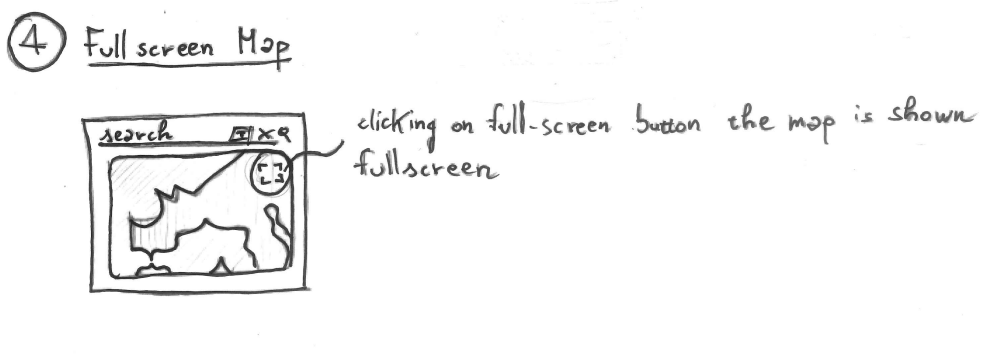 4 Full screen Map
search
clicking on full-screen button the map is shown
fullscreen